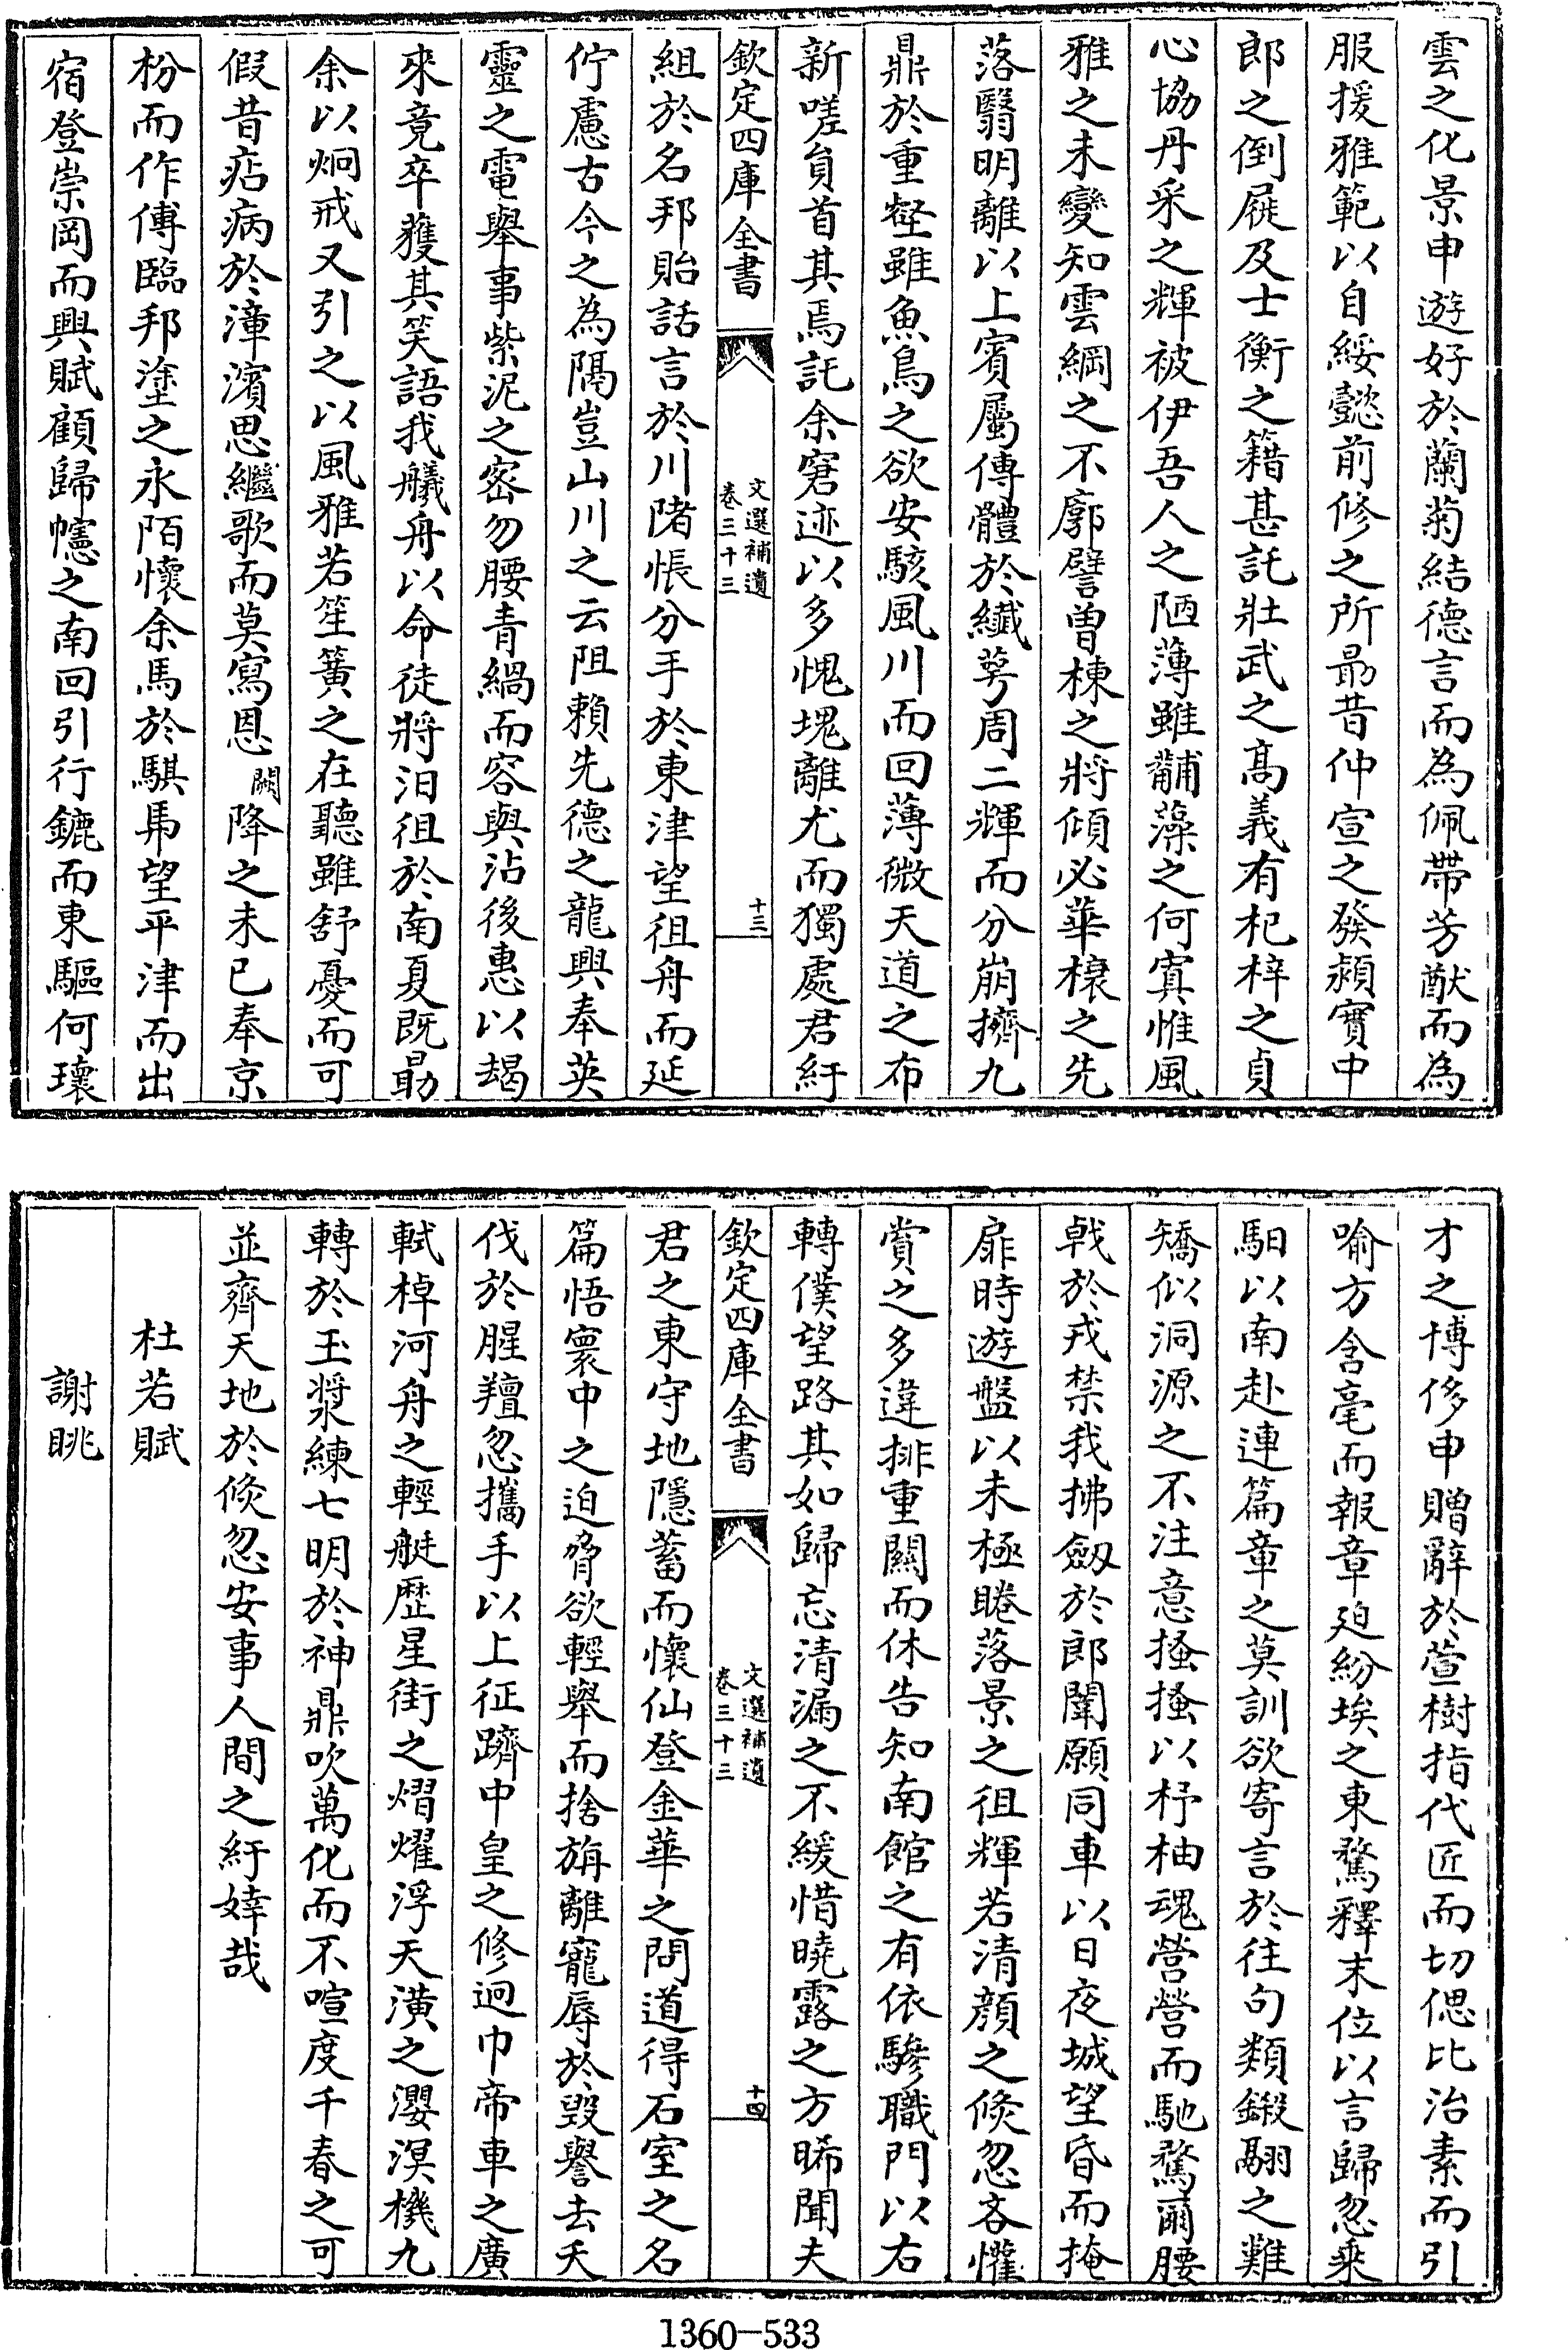 雲之化景申遊好於蘭菊結德言而為佩帶芳猷而為
服援雅範以自綏懿前修之所勗昔仲宣之發潁實中
郎之倒屣及士衡之籍甚託壯武之高義有杞梓之貞
心協丹采之輝被伊吾人之陋薄雖黼藻之何寘惟風
雅之未變知雲綱之不廓譬曽棟之將傾必華榱之先
落翳明離以上賓屬傳體於纖萼周二輝而分崩擠九
鼎於重壑雖魚鳥之欲安駭風川而回薄微天道之布
新嗟貟首其焉託余窘迹以多愧塊離尤而獨處君紆
欽定四庫全書
文選補遺
卷三十三
十三
組於名邦貽話言於川陼悵分手於東津望徂舟而延
佇慮古今之為隔豈山川之云阻賴先德之龍興奉英
靈之電舉事紫泥之密勿腰青緺而容與沾後惠以朅
來竟卒獲其笑語我艤舟以命徒將汨徂於南夏既勗
余以炯戒又引之以風雅若笙簧之在聽雖舒憂而可
假昔痁病於漳濱思繼歌而莫寫恩闕降之未已奉京
枌而作傅臨邦塗之永陌懷余馬於騏馵望平津而出
宿登崇岡而興賦顧歸幰之南回引行鑣而東驅何瓌
才之博侈申贈辭於萱樹指代匠而切偲比治素而引
喻方含毫而報章廹紛埃之東騖釋末位以言歸忽乘
馹以南赴連篇章之莫訓欲寄言於往句類鎩翮之難
矯似洞源之不注意搔搔以杼柚魂營營而馳騖爾腰
戟於戎禁我拂劔於郎闈願同車以日夜城望昏而掩
扉時遊盤以未極睠落景之徂輝若清顔之倐忽吝懽
賞之多違排重闗而休告知南館之有依驂職門以右
轉僕望路其如歸忘清漏之不緩惜曉露之方晞聞夫
欽定四庫全書
文選補遺
卷三十三
十四
君之東守地隱蓄而懷仙登金華之問道得石室之名
篇悟寰中之迫脅欲輕舉而捨旃離寵辱於毀譽去夭
伐於腥羶忽攜手以上征躋中皇之修迥巾帝車之廣
軾棹河舟之輕艇歴星街之熠燿浮天潢之瀴溟機九
轉於玉漿練七明於神鼎吹萬化而不喧度千春之可
並齊天地於倐忽安事人間之紆婞哉
杜若賦
謝眺
1360-533